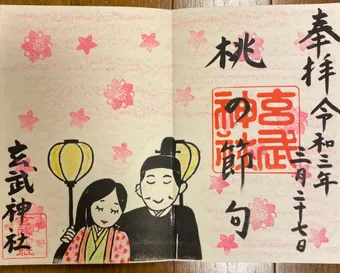 奉拝
令和三年
三月二十七日
桃の節句
玄武神社
玄武神社